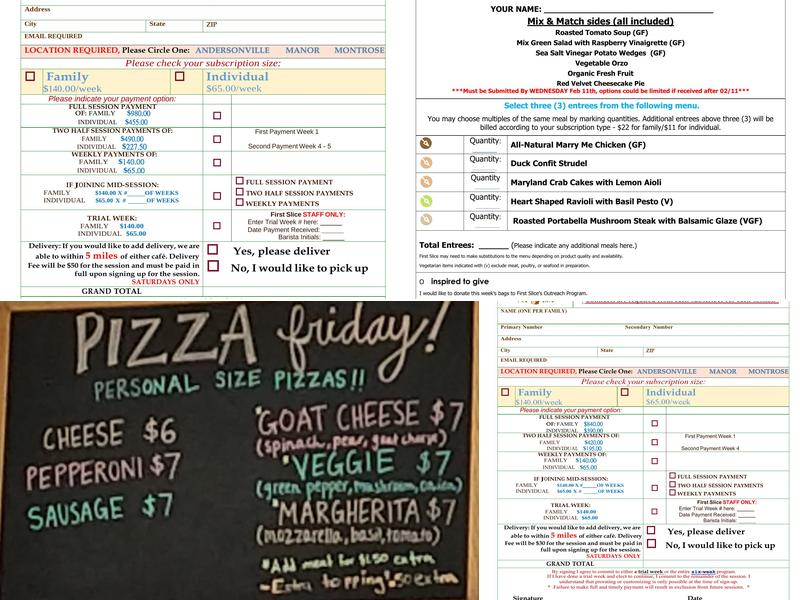 Address
City State ZIP
EMAIL REQUIRED
LOCATION REQUIRED, Please Circle One: ANDERSONVILLE MANOR MONTROSE
Please check your subscription size:
Family Individual
$140.00/week $65.00/week
Please indicate your payment option:
FULL SESSION PAYMENT
OF: FAMILY $980.00
INDIVIDUAL $455.00
TWO HALF SESSION PAYMENTS OF:
FAMILY $490.00 First Payment Week 1
INDIVIDUAL $227.50 Second Payment Week 4 - 5
WEEKLY PAYMENTS OF:
FAMILY $140.00
INDIVIDUAL $65.00
IF JOINING MID-SESSION:
FAMILY $140.00 X #_____OF WEEKS
INDIVIDUAL $65.00 X #_____OF WEEKS
FULL SESSION PAYMENT
TWO HALF SESSION PAYMENTS
WEEKLY PAYMENTS
TRIAL WEEK:
FAMILY $140.00
INDIVIDUAL $65.00
First Slice STAFF ONLY:
Enter Trial Week # here: ______
Date Payment Received: ______
Barista Initials: ______
Delivery: If you would like to add delivery, we are
able to within 5 miles of either café. Delivery
Fee will be $50 for the session and must be paid in
full upon signing up for the session.
SATURDAYS ONLY
Yes, please deliver
No, I would like to pick up
GRAND TOTAL
YOUR NAME: ______
Mix & Match sides (all included)
Roasted Tomato Soup (GF)
Mix Green Salad with Raspberry Vinaigrette (GF)
Sea Salt Vinegar Potato Wedges (GF)
Vegetable Orzo
Organic Fresh Fruit
Red Velvet Cheesecake Pie
***Must be Submitted By WEDNESDAY Feb 11th, options could be limited if received after 02/11***
Select three (3) entrees from the following menu.
You may choose multiples of the same meal by marking quantities. Additional entrees above three (3) will be
billed according to your subscription type - $22 for family/$11 for individual.
Quantity: All-Natural Marry Me Chicken (GF)
Quantity: Duck Confit Strudel
Quantity: Maryland Crab Cakes with Lemon Aioli
Quantity: Heart Shaped Ravioli with Basil Pesto (V)
Quantity: Roasted Portabella Mushroom Steak with Balsamic Glaze (VGF)
Total Entrees: ______ (Please indicate any additional meals here.)
First Slice may need to make substitutions to the menu depending on product quality and availability.
Vegetarian items indicated with (v) exclude meat, poultry, or seafood in preparation.
o inspired to give
I would like to donate this week's bags to First Slice's Outreach Program.
PIZZA friday!
PERSONAL SIZE PIZZAS!!
CHEESE $6
PEPPERONI $7
SAUSAGE $7
GOAT CHEESE $7
VEGGIE $7
(green pepper, mushroom, onion)
MARGHERITA
(mozzarella, basil, tomato)
NAME (ONE PER FAMILY)
Primary Number Secondary Number
Address
City State ZIP
EMAIL REQUIRED
LOCATION REQUIRED, Please Circle One: ANDERSONVILLE MANOR MONTROSE
Please check your subscription size:
Family Individual
$140.00/week $65.00/week
Please indicate your payment option:
FULL SESSION PAYMENT
OF: FAMILY $840.00
INDIVIDUAL $390.00
TWO HALF SESSION PAYMENTS OF:
FAMILY $420.00 First Payment Week 1
INDIVIDUAL $195.00 Second Payment Week 4
WEEKLY PAYMENTS OF:
FAMILY $140.00
INDIVIDUAL $65.00
IF JOINING MID-SESSION:
FAMILY $140.00 X #_____OF WEEKS
INDIVIDUAL $65.00 X #_____OF WEEKS
FULL SESSION PAYMENT
TWO HALF SESSION PAYMENTS
WEEKLY PAYMENTS
TRIAL WEEK:
FAMILY $140.00
INDIVIDUAL $65.00
First Slice STAFF ONLY:
Enter Trial Week # here: ______
Date Payment Received: ______
Barista Initials: ______
Delivery: If you would like to add delivery, we are
able to within 5 miles of either café. Delivery
Fee will be $30 for the session and must be paid in
full upon signing up for the session.
SATURDAYS ONLY
Yes, please deliver
No, I would like to pick up
GRAND TOTAL
By signing I agree to commit to either a trial week or the entire six-week program.
If I have done a trial week and elect to continue, I commit to the remainder of the session. I
understand that prorating or customizing is only possible at the time of sign-up.
* Failure to make full and timely payment will result in exclusion from future sessions. *
Signature Date